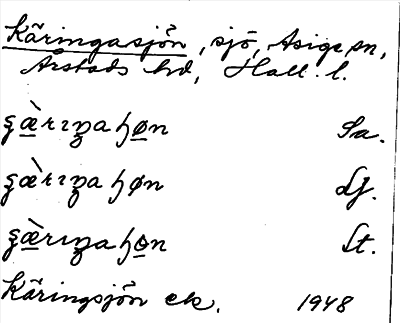 Käringasjön, sjö, Asige sn,
Årstads hd, Hall. l.
ʂæ̀rɪŋa ɧøn Sa.
ʂæ̀rɪŋa ɧøn Lj.
ʂæ̀rɪŋa ɧøn St.
Käringsjön ek. 1948